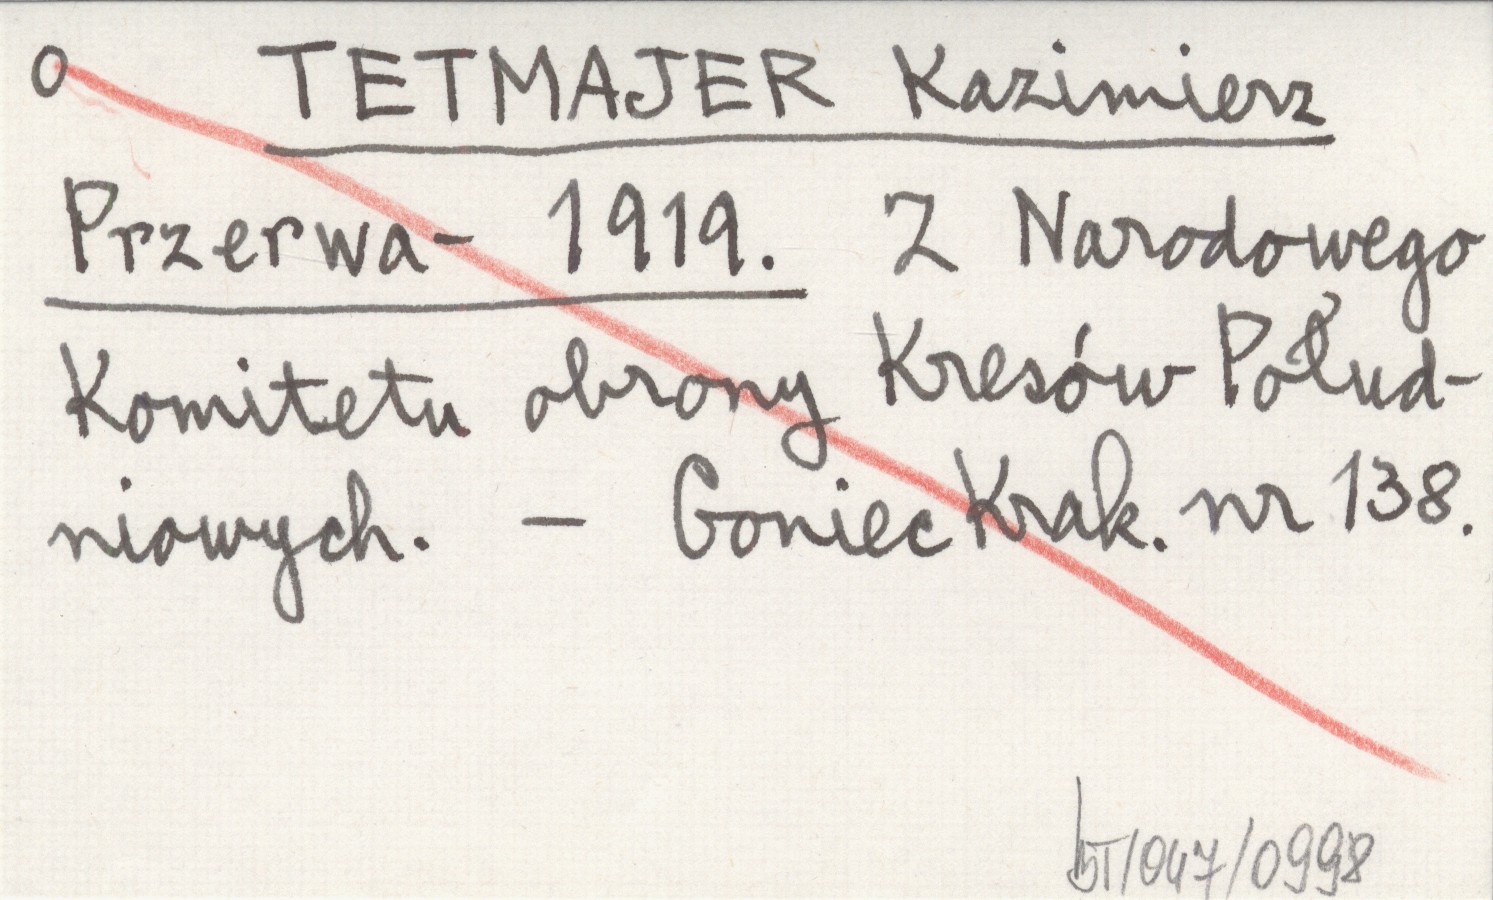 O TETMAJER Kazimierz
Przerwa- 1919. Z Narodowego
Komitetu obrony Kresów Połud-
niowych. - Goniec Krak. nr 138.
/047/0998